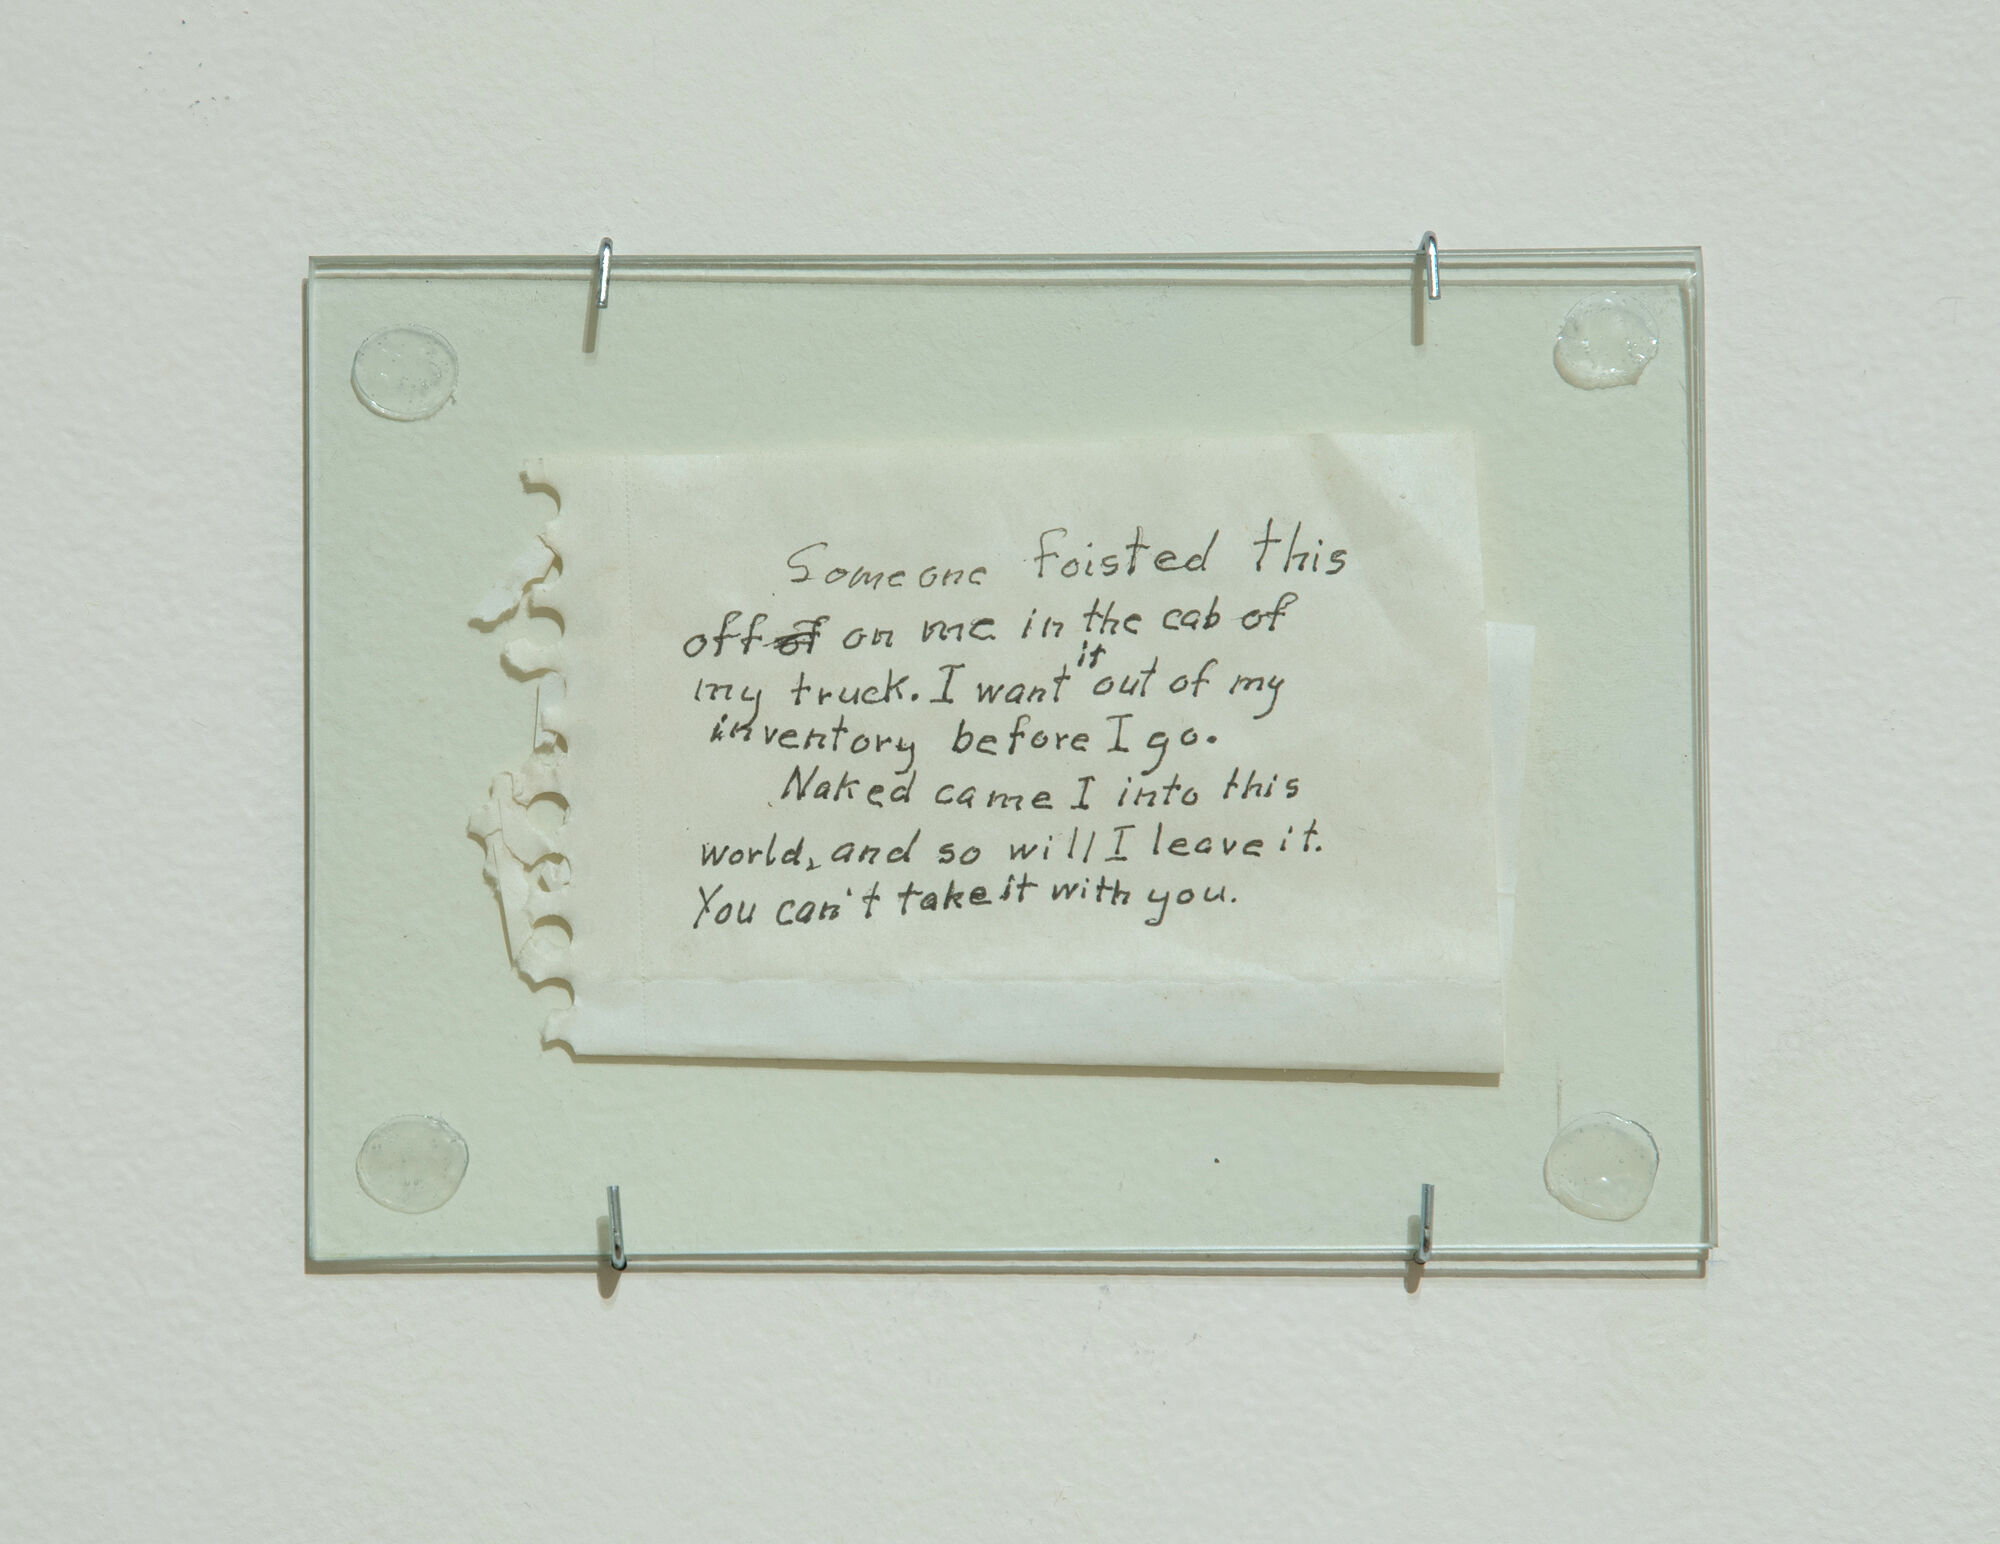 Someone foisted this
off of on me in the cab of
my truck. I want it out of my
inventory before I go.
Naked came I into this
world, and so will I leave it.
You can't take it with you.